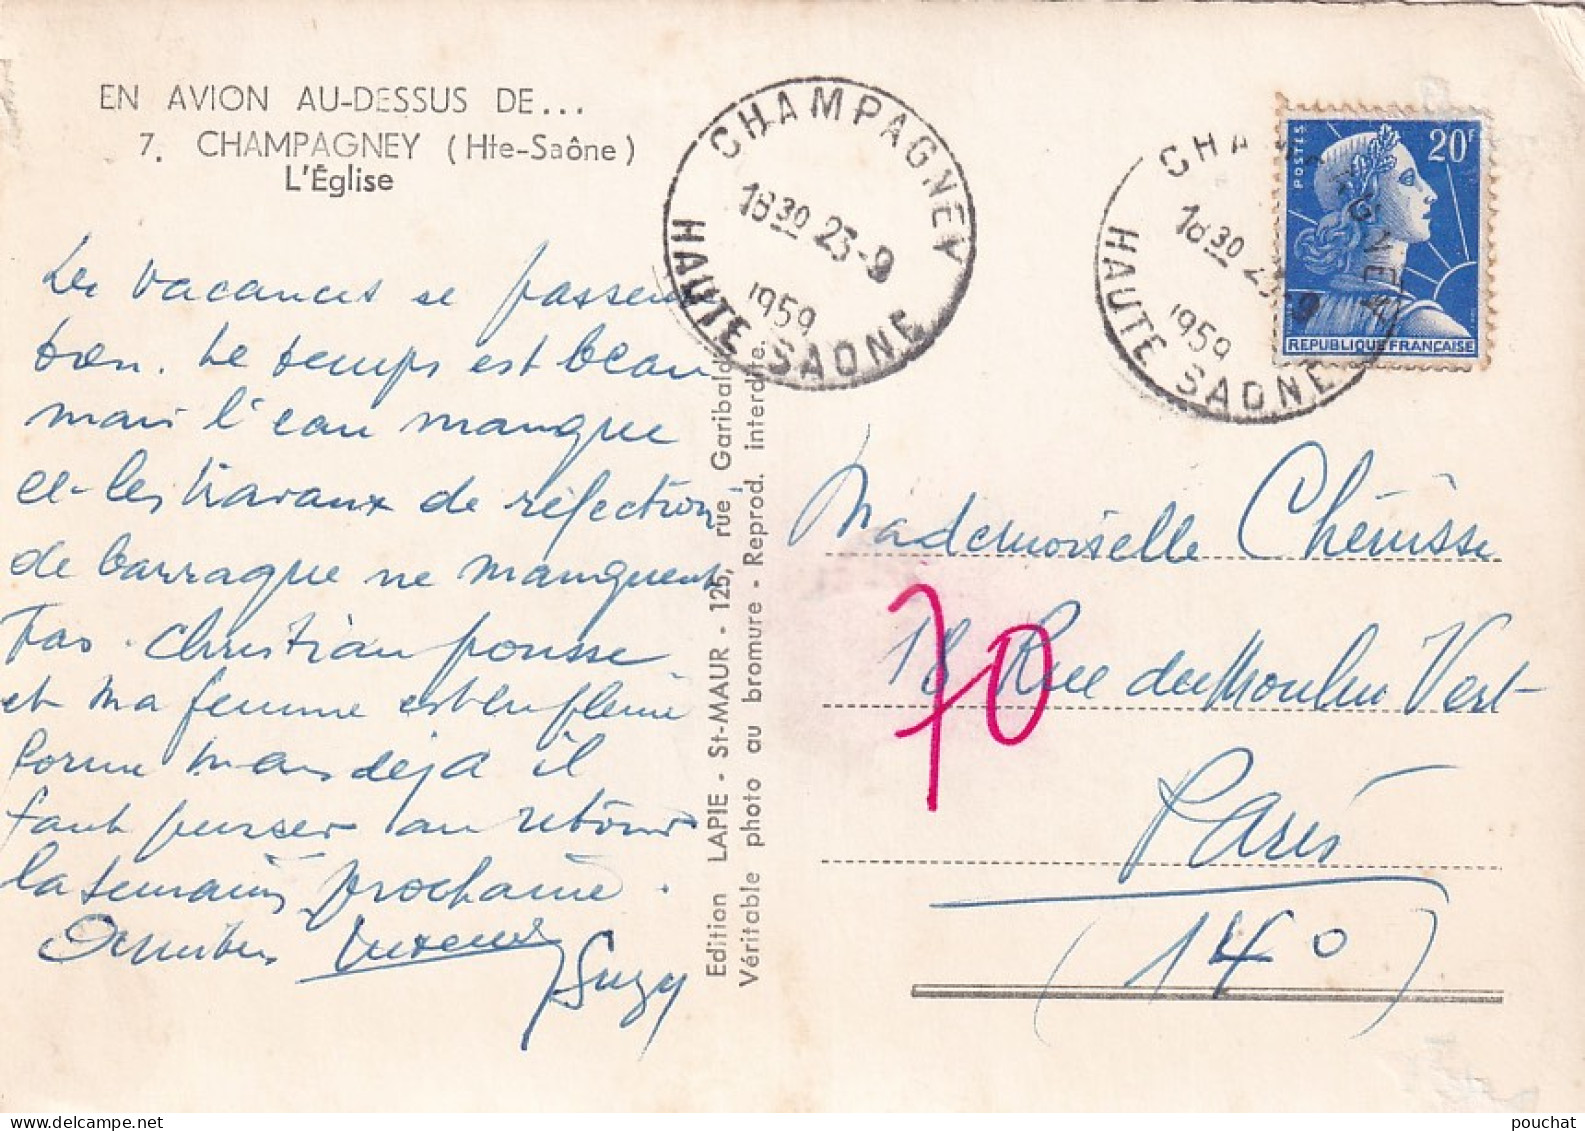 EN AVION AU-DESSUS DE...
7. CHAMPAGNEY (Hte-Saône)
L'Église
CHAMPAGNEY
18 30 23-9
1959
HAUTE SAONE
CHAMPAGNEY
18 30 23-9
1959
HAUTE SAONE
POSTES
20F
REPUBLIQUE FRANÇAISE
Les vacances se passent
bien. Le temps est beau
mais l'eau manque
et les travaux de réfection
de barraque ne manquent
pas. Christian pousse
et ma femme est en pleine
forme mais déjà il
faut penser au retour
la semaine prochaine.
Suzy
Edition LAPIE - St-MAUR - 125, rue Garibaldi
Véritable photo au bromure - Reprod. interdite.
Mademoiselle Chérisse
18 Rue du Moulin Vert
70
Paris
(14°)
pouchat